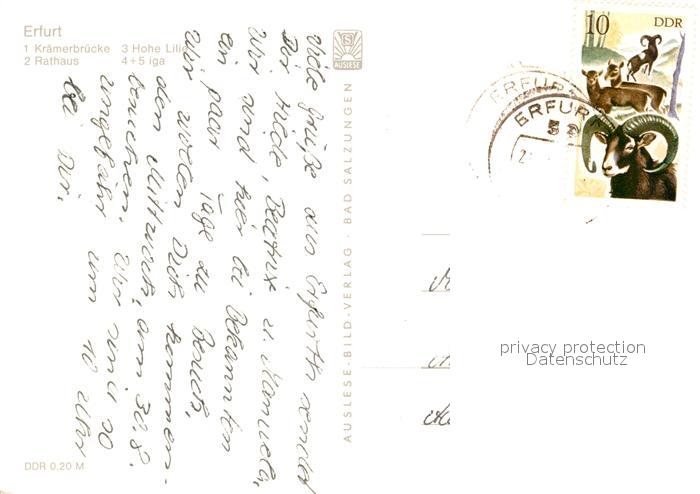 Erfurt
1 Krämerbrücke 3 Hohe Lilie
2 Rathaus 4+5 iga
AUSLESE
Viele Grüße aus Erfurth sendet
Dir Friede, Beatrix u. Manuela,
Wir sind hier bei Bekannten
ein paar Tage zu Besuch,
Wir wollen Dich kommen-
den Mittwoch, am 30.8.
besuchen. Wir sind so
ungefähr um 10 Uhr
bei Dir.
AUSLESE-BILD-VERLAG · BAD SALZUNGEN
DDR 0,20 M
10 DDR
ERFURT
ERFURT
privacy protection
Datenschutz